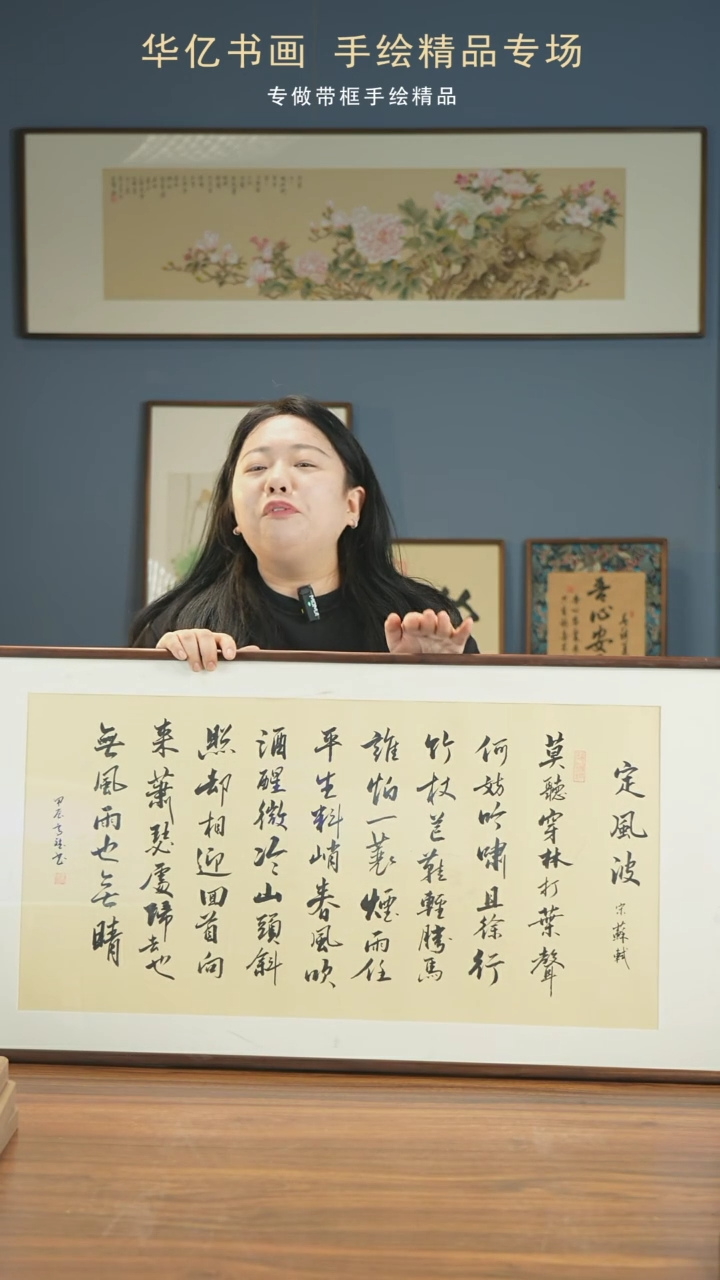 华亿书画 手绘精品专场
专做带框手绘精品
吾心安
定風波
宋蘇軾
莫聽穿林打葉聲
何妨吟嘯且徐行
竹杖芒鞋輕勝馬
誰怕一蓑煙雨任
平生料峭春風吹
酒醒微冷山頭斜
照却相迎回首向
來蕭瑟處歸去也
無風雨也無晴
甲辰